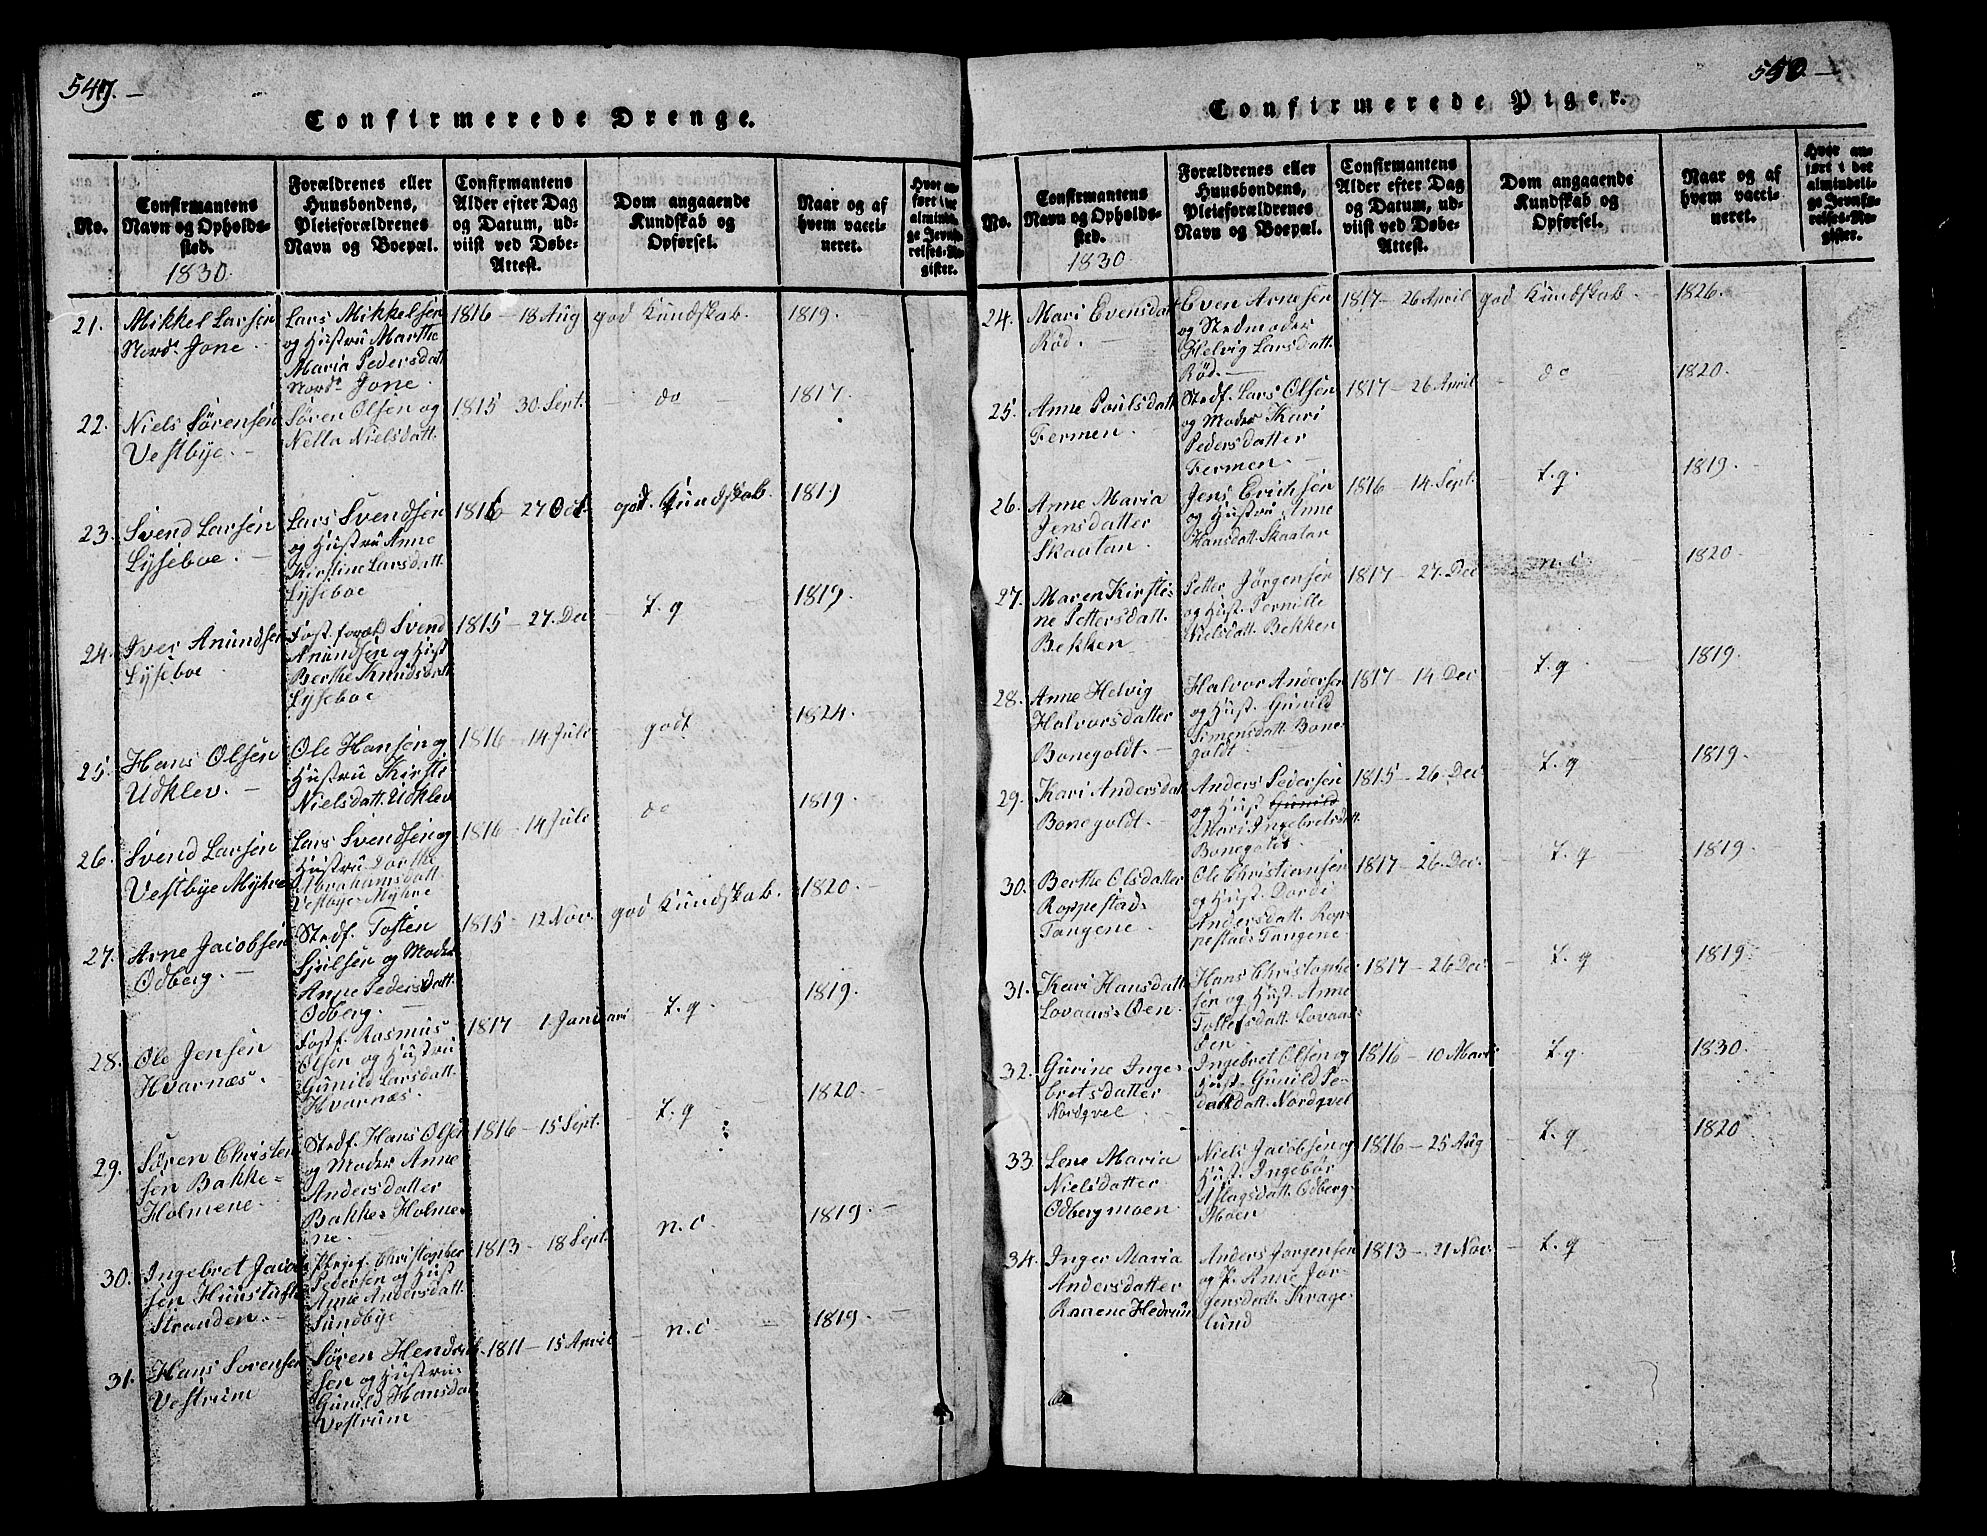 549. —
Confirmerede Drenge.
No.
Confirmantens
Navn og Opholds-
sted.
1830.
Forældrenes eller
Huusbondens,
Pleieforældrenes
Navn og Boepæl.
Confirmantens
Alder efter Dag
og Datum, ud-
viist ved Døbe-
Attest.
Dom angaaende
Kundskab og
Opførsel.
Naar og af
hvem vacci-
neret.
Hvor an-
ført i det
almindeli-
ge Jevnfø-
relses-Re-
gister.
21. Mikkel Larsen
Nordr Jone
Lars Mikkelsen
og Hustru Marthe
Maria Pedersdatt
Nordr Jone.
1816 — 18 Aug
god Kundskab.
1819.
22. Niels Sörensen
Vestbye. —
Sören Olsen og
Nella Nielsdatt.
1815 — 30 Sept.
do
1817.
23. Svend Larsen
Lyseboe. —
Lars Svendsen
og Hustru Anne
Kirstine Larsdatt.
Lyseboe
1816 — 27 Oct.
god. Kundskab.
1819
24. Iver Anundsen
Lyseboe
Fost.foræl Svend
Anundsen og Hust
Berthe Knudsdatt
Lyseboe
1815 — 27. Dec
t. g
1819.
25. Hans Olsen
Udklev. —
Ole Hansen og
Hustru Kirsti
Nielsdatt. Udklev
1816 — 14 Juli
godt
1824.
26. Svend Larsen
Vestbye Myhre
Lars Svendsen og
Hustru Dorthe
Abrahamsdatt.
Vestbye Myhre
1816 — 14 Juli
do
1819.
27. Arne Jacobsen
Odberg. —
Stedf. Tosten
Sjulsen og Moder
Anne Pedersdatt.
Odberg. —
1815 — 12 Nov.
god Kundskab.
1820. —
28. Ole Jensen
Hvarnæs. —
Fostf. Rasmus
Olsen og Hustru
Gunild Larsdatt.
Hvarnæs. —
1817 — 1. Januari
t. g.
1819.
29. Sören Christen
sen Bakke=
Holmene. —
Stedf. Hans Olsen
og Moder Anne
Andersdatter
Bakke Holme=
ne. —
1816 — 15 Sept.
t. g
1820.
30. Ingebret Jacob
sen
Stranden. —
Pleief. Christopher
Pedersen og Hust
Anne Andersdatt.
Sundbye
1813 — 18 Sept.
n. c.
1819. —
31. Hans Sorensen
Vestrum
Sören Hendrik
sen og Hustru
Gunild Hansdat
Vestrum
1811 — 15 April
n. c.
1819. —
550. —
Confirmerede Piger.
No.
Confirmantens
Navn og Opholds-
sted.
1830
Forældrenes eller
Huusbondens,
Pleieforældrenes
Navn og Boepæl.
Confirmantens
Alder efter Dag
og Datum, ud-
viist ved Døbe-
Attest.
Dom angaaende
Kundskab og
Opførsel.
Naar og af
hvem vacci-
neret.
Hvor an-
ført i det
almindeli-
ge Jevnfø-
relses-Re-
gister.
24. Mari Evensdatt
Röd. —
Even Arnesen
og Stedmoder
Helvig Larsdatt.
Röd. —
1817 — 26 April
god Kundskab
1826. —
25. Anne Poulsdatt
Fermen. —
Stedf. Lars Olsen
og Moder Kari
Pedersdatter
Fermen. —
1817 — 26 April
do
1820.
26. Anne Maria
Jensdatter
Skaatan.
Jens Erichsen
og Hustru Anne
Hansdatt. Skaatan
1816 — 14 Sept.
t. g.
1819. —
27. Maren Kirsti=
ne Pettersdatt.
Bekken
Petter Jörgensen
og Hust. Pernille
Nielsdatt. Bekken
1817 — 27. Dec
n. c
1820.
28. Anne Helvig
Halvorsdatter
Bonegoldt. —
Halvor Andersen
og Hust. Gunild
Simensdatt. Bone=
goldt. —
1817 — 14 Dec
t. g
1819.
29. Kari Andersdatt
Bonegoldt. —
Anders Pedersen
og Hust Gunild
Mari Ingebretsdatt.
Bonegoldt.
1815 — 26. Dec
t. g
1819. —
30. Berthe Olsdatter
Roppestad=
Tangene.
Ole Christiansen
og Hust. Dordi
Andersdatt. Rop=
pestads Tangene.
1817 — 26 Dec.
t. g
1819. —
31. Kari Hansdatt.
Lovaas=Öen.
Hans Christophe
sen og Hust. Anne
Tostensdatt. Lovaas=
Öen.
1817 — 26 Dec.
t. g
1819.
32. Gurine Inge=
bretsdatter
Nordqvel —
Ingebret Olsen og
Hust. Gunild Pe=
dersdatt. Nordqvel
1816 — 10 Marts
t. g.
1830. —
33. Lene Maria
Nielsdatter
Odbergmoen
Niels Jacobsen og
Hust. Ingebör
Aslagsdatt. Odberg=
Moen
1816 — 25 Aug
t. g
1820
34. Inger Maria
Andersdatter
Ranene Hedrum
Anders Jorgensen
og K. Anne Jor=
gensdatt. Krage=
lund
1813 — 21 Nov.
t. g